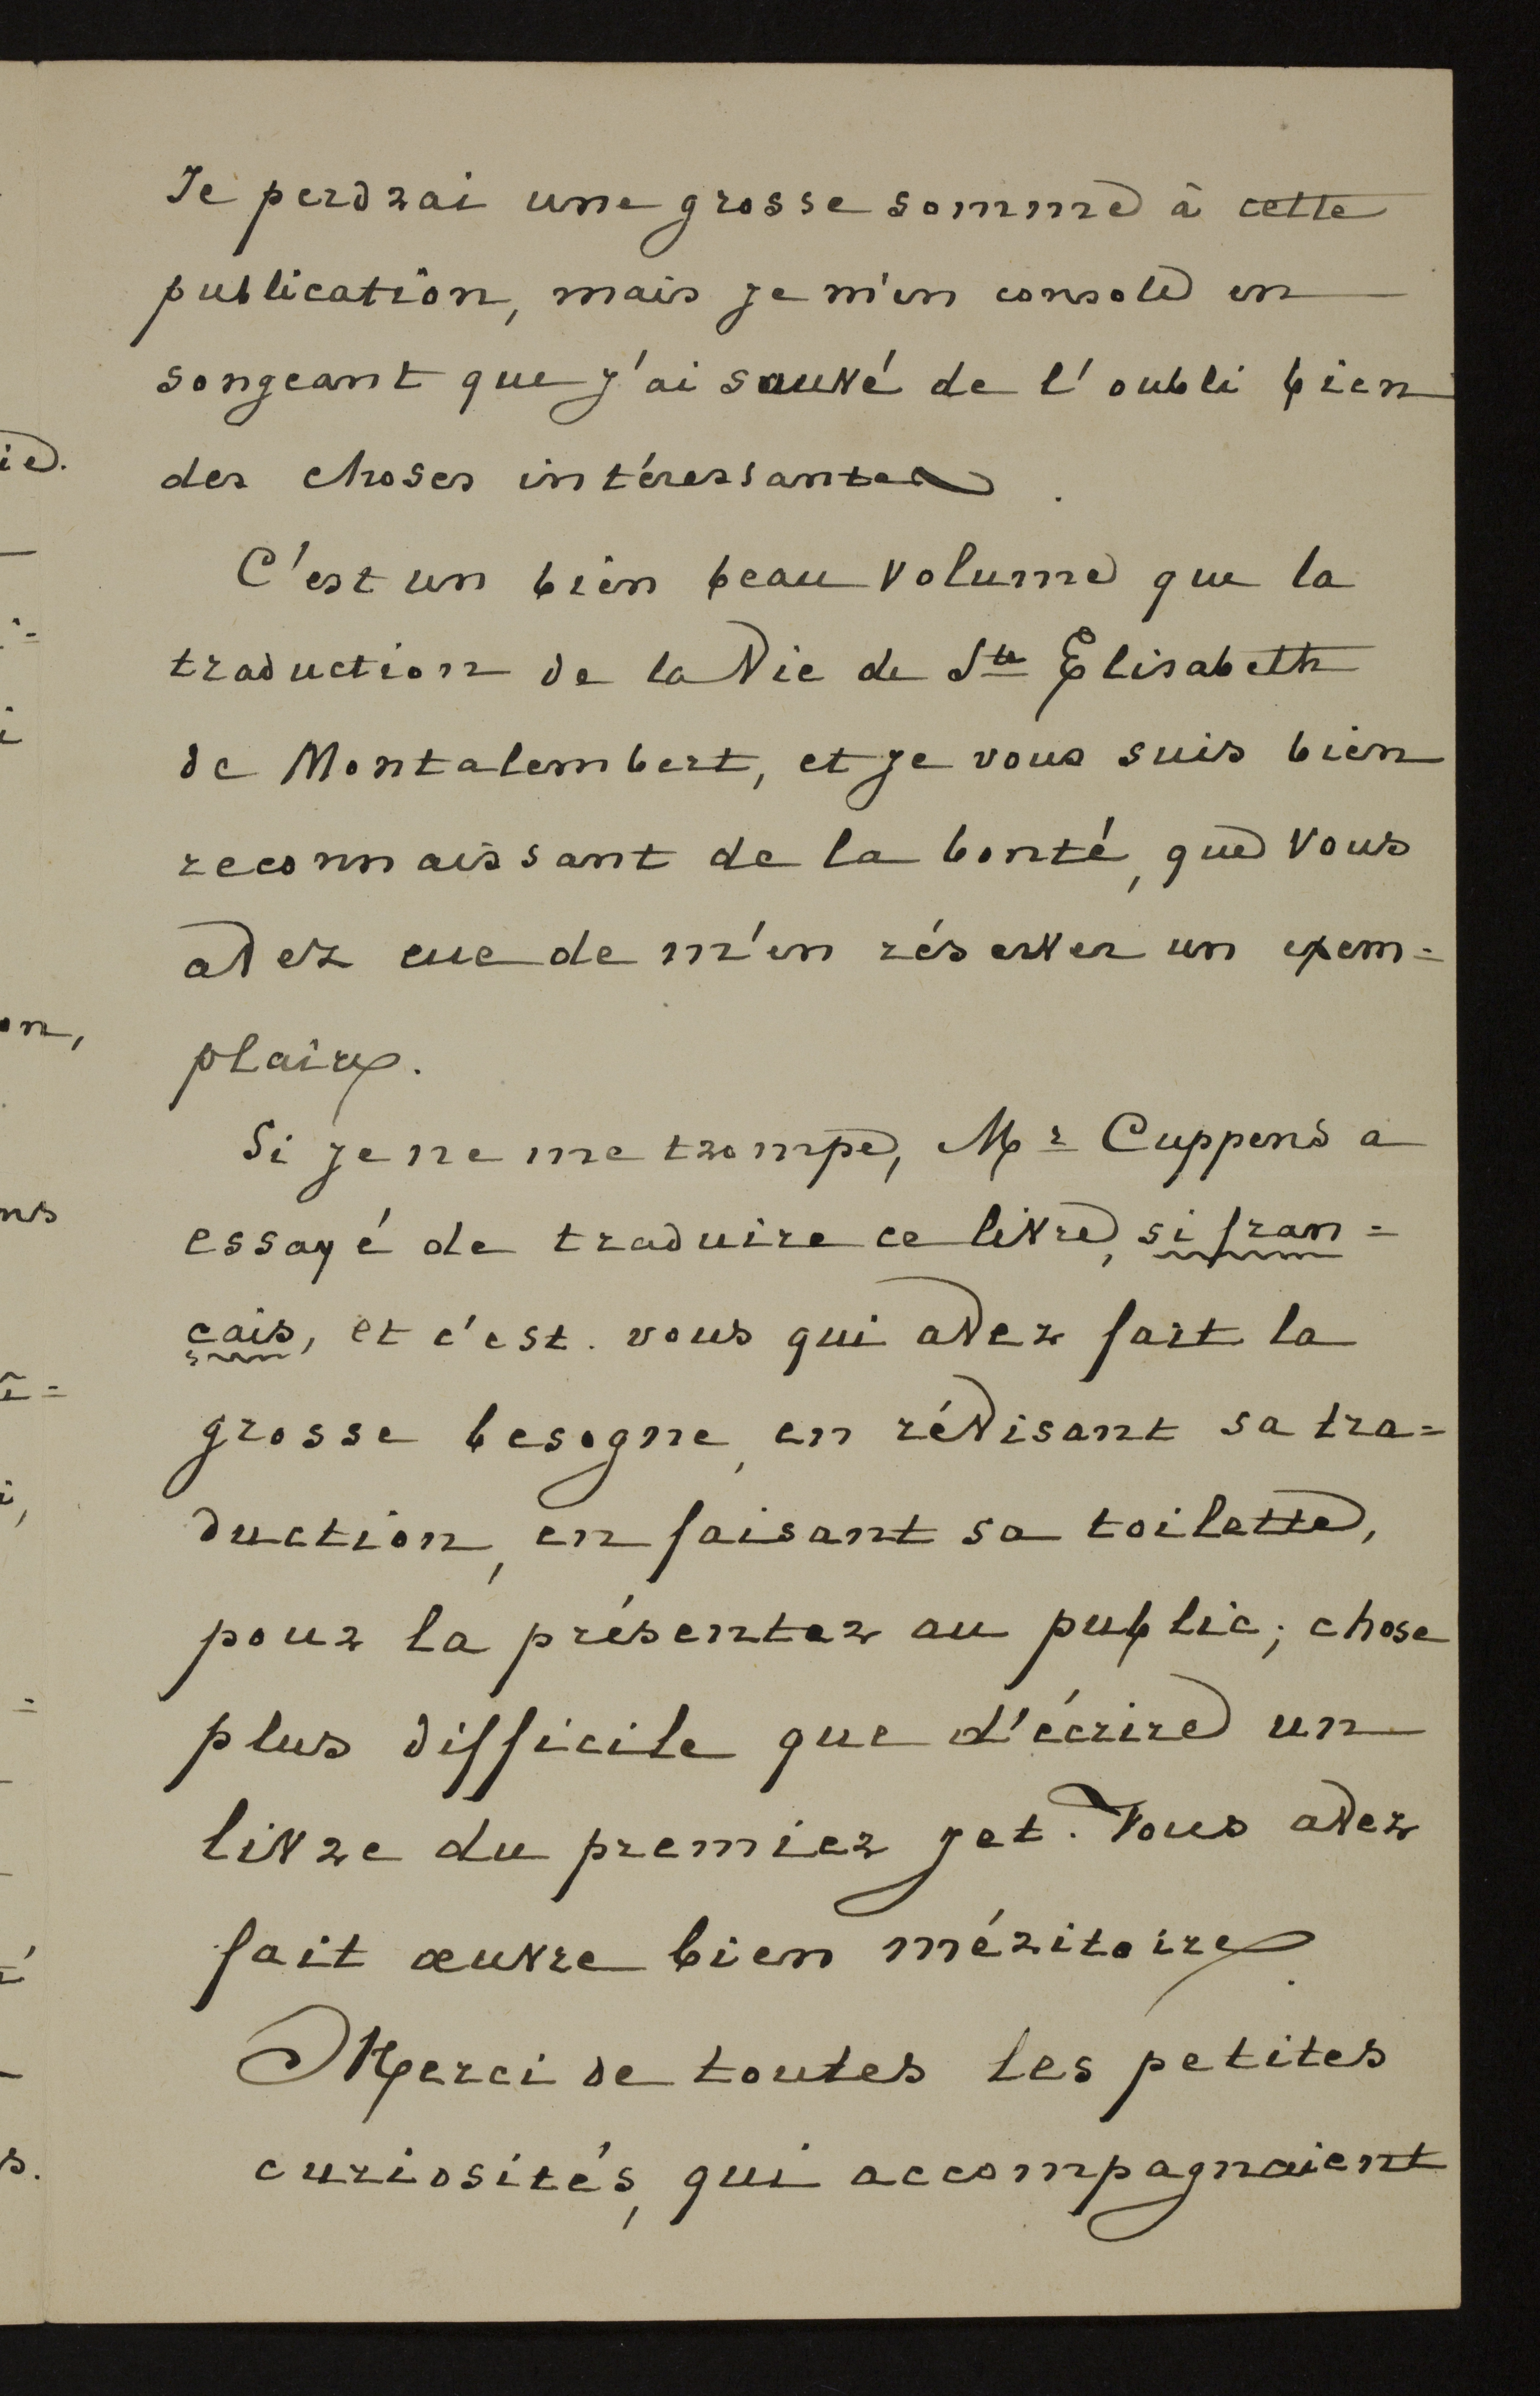 Je perdrai une grosse somme à cette
publication, mais je m'en console en
songeant que j'ai sauvé de l'oubli bien
des choses intéressantes.
C'est un bien beau volume que la
traduction de la Vie de Ste Elisabeth
de Montalembert, et je vous suis bien
reconnaissant de la bonté, que vous
avez eue de m'en réserver un exem=
plaire.
Si je ne me trompe, Mr Cuppens a
essayé de traduire ce livre, si fran=
cais, et c'est vous qui avez fait la
grosse besogne, en révisant sa tra=
duction, en faisant sa toilette,
pour la présenter au public; chose
plus difficile que d'écrire un
livre du premier jet. Vous avez
fait œuvre bien méritoire.
Merci de toutes les petites
curiosités, qui accompagnaient